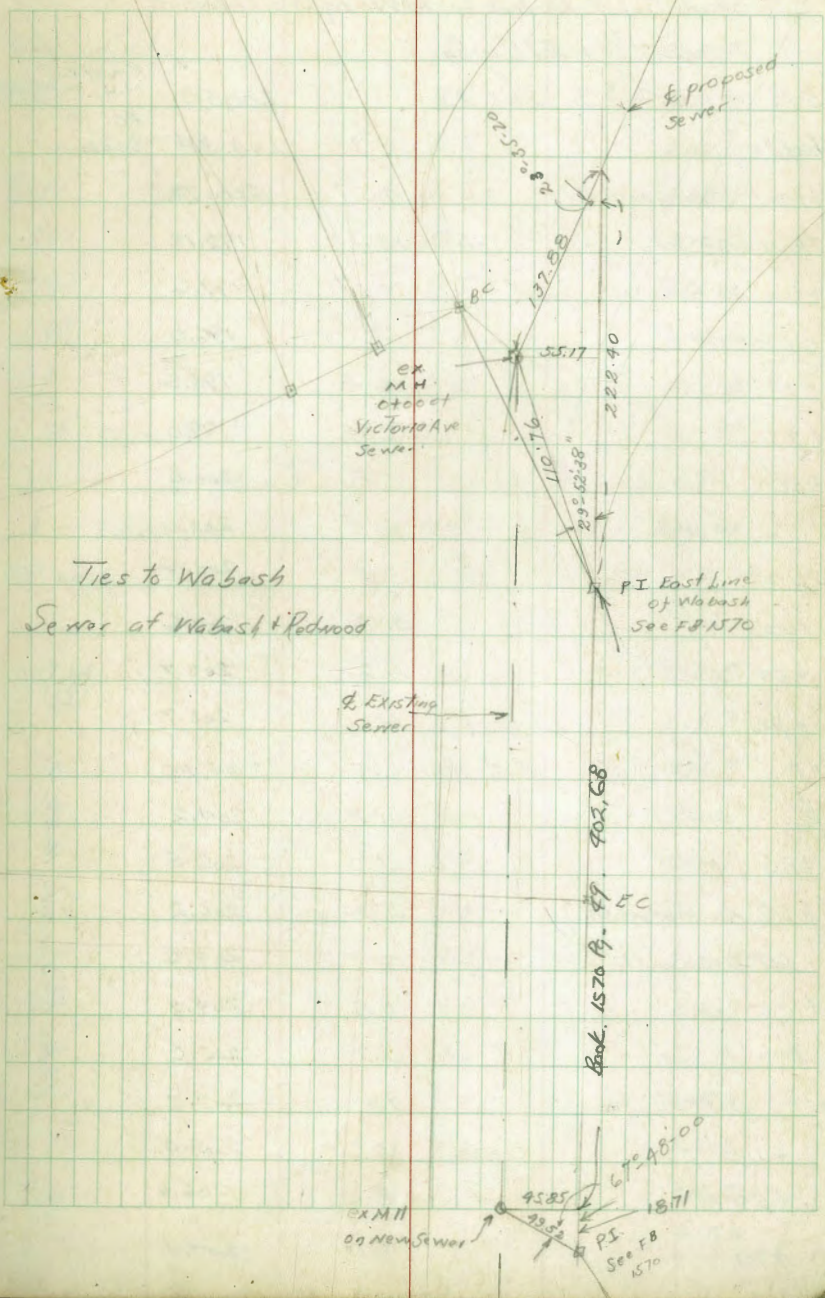 ℄ proposed
Sewer.
23°-35-20
137.88
BC
55.17
222.40
ex
MH
0+00 of
Victoria Ave
Sewer
110.76
29°-52'-38"
Ties to Wabash
Sewer at Wabash & Redwood
PI East Line
of Wabash
See FB 1570
℄ Existing
Sewer
Book. 1570 Pg- 49. 402.68
EC
67°-48-00
45.85
18.71
49.52
ex MH
on New Sewer
P.I.
See FB
1570